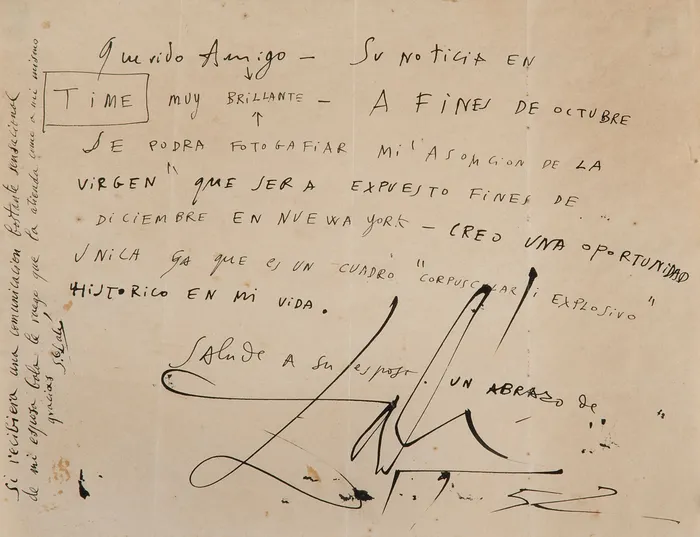 Querido Amigo — Su NOTICIA EN
TIME MUY BRILLANTE — A FINES DE OCTUBRE
SE PODRA FOTOGAFIAR MI "ASOMCION DE LA
VIRGEN" QUE SERA EXPUESTO FINES DE
DICIEMBRE EN NUEWA YORK — CREO UNA OPORTUNIDAD
UNICA YA QUE es UN CUADRO "CORPUSCULAR i EXPLOSIVO"
HISTORICO EN MI VIDA.
SALUDE A Su esposa. UN ABRAZO de
Dalí
52
Si recibiera una comunicacion bastante sensacional
de mi esposa Gala le ruego que la atienda como a mi mismo
gracias S. Dalí